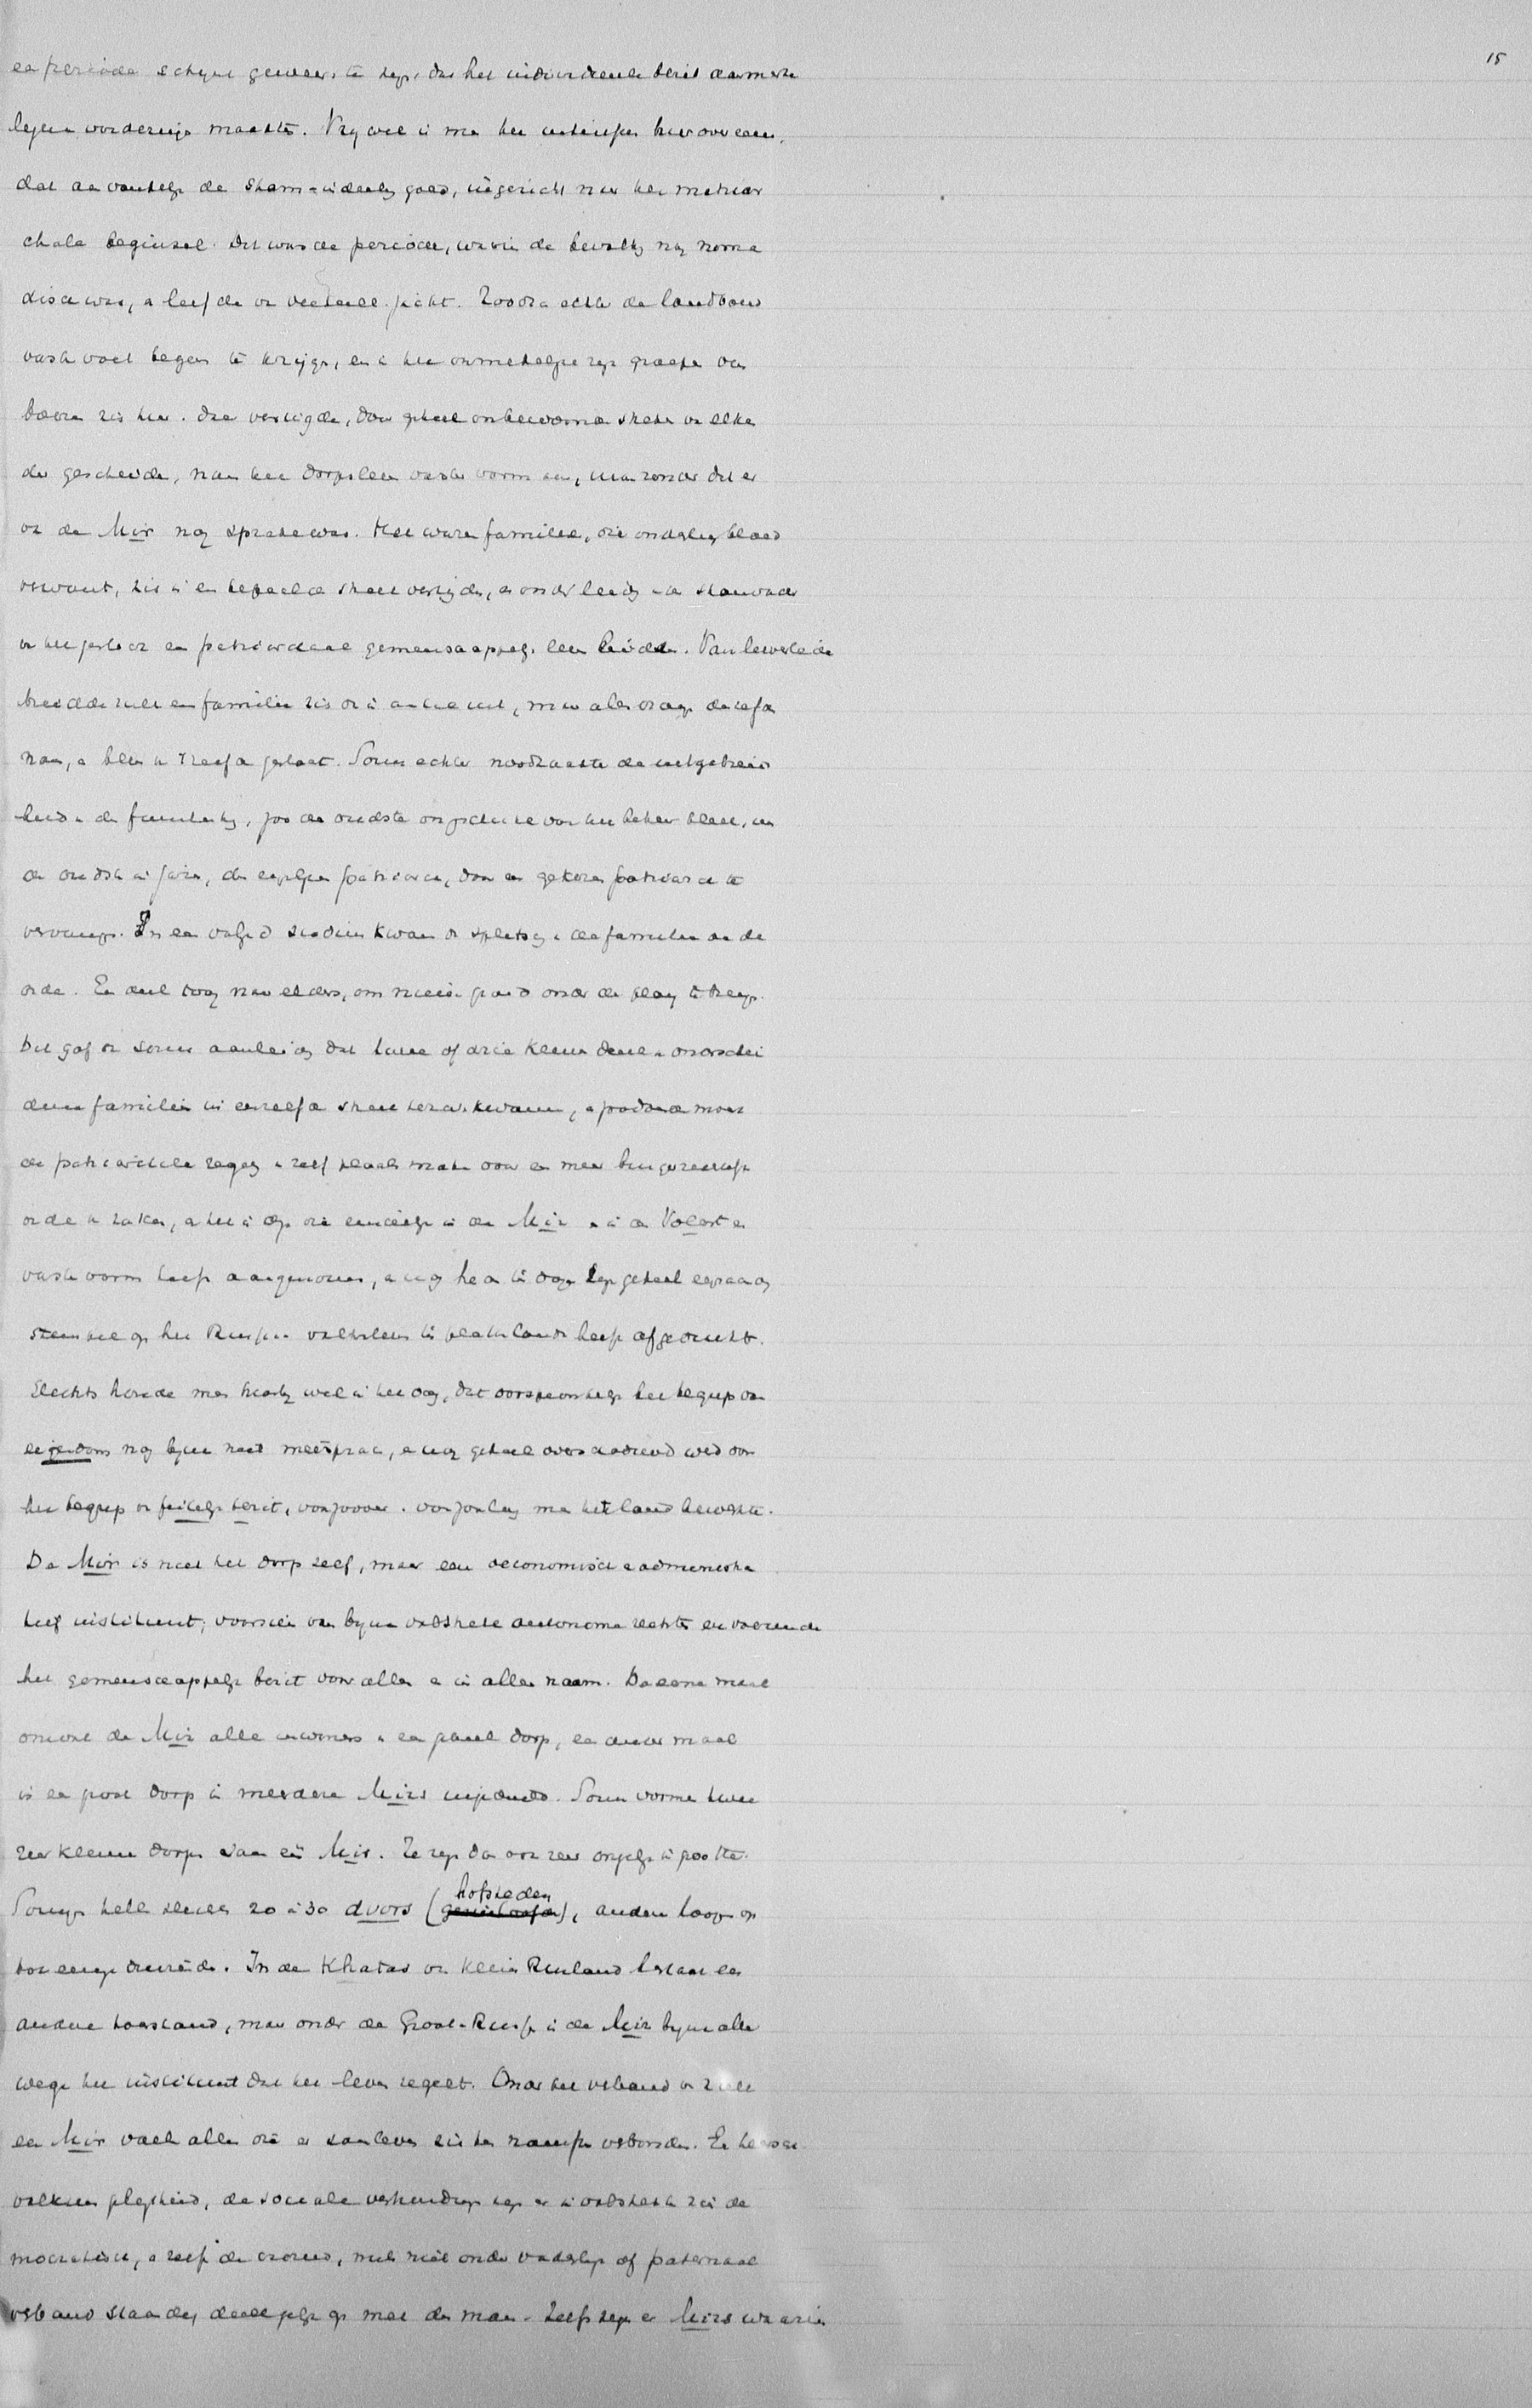 15
een periode schijnt geweest te zijn, dat het individueele bezit aanmerke
lijke vorderingen maakte. Vrij wel is men het
dat aanvankelijk de Stam-indeeling goed, ingericht naar het matriar
chale beginsel. Dit was de periode, waarin de bevolking nog noma
disch was, en leefde van veeteelt. Zoodra echter de landbouw
vasten voet begon te krijgen, en in het onmetelijke rijk groepen van
boeren zich hier en daar vestigden, door geheel onbewoonde streken van elkan
der gescheiden, nam het dorpsleven vaster vorm aan, maar zonder dat er
van de Mir nog sprake was. Het waren families, die onderling bloed
verwant, zich in een bepaalde streek vestigden, en onder leiding van den stamvader
of het geslacht een patriarchaal gemeenschappelijk leven leidden. Van lieverlede
breidde zulk een familie zich dan in aantal uit, maar allen droegen denzelfden
naam, en bleven in hetzelfde geslacht. Soms echter noodzaakte de uitgebreid
heid van de familie, zoo de oudste ongeschikt voor het beheer bleek, om
de oudste in jaren, de eigenlijke patriarch, door een gekozen patriarch te
vervangen. In een volgend stadium kwam de splitsing van de families aan de
orde. Een deel toog naar elders, om nieuwen grond onder den ploeg te brengen.
Dit gaf dan soms aanleiding dat twee of drie kleine deelen van onderschei
dene families in eenzelfde streek terecht kwamen, en zoodoende moest
de patriarchale regeling vanzelf plaats maken voor een meer burgerrechtelijke
orde van zaken, en het is deze die eindelijk in de Mir en in de Volost een
vasten vorm heeft aangenomen, en nog heden ten dage zijn geheel eigenaardig
stempel op het Russische volksleven ten plattelande heeft afgedrukt.
Slechts houde men hierbij wel in het oog, dat oorspronkelijk het begrip van
eigendom nog bijna niet meesprak, en nog geheel overschaduwd werd door
het begrip van feitelijk bezit, voorzoover en voorzoolang men het land bewerkte.
De Mir is niet het dorp zelf, maar een oeconomisch en administra
tief instituut, voorzien van bijna volstrekt autonome rechten en voerende
het gemeenschappelijk bezit voor allen en in aller naam. De eene maal
omvat de Mir alle inwoners van een geheel dorp, een ander maal
is een groot dorp in meerdere Mirs ingedeeld. Soms vormen twee
zeer kleine dorpen saam één Mir. Ze zijn dan ook zeer ongelijk in grootte.
Sommige tellen slechts 20 à 30 dvors (hofsteden), andere loopen op
tot eenige duizenden. In de Khatas van Klein Rusland bestaat een
andere toestand, maar onder de Groot-Russen is de Mir bijna alle
wege het instituut dat het leven regelt. Onder het verband van zulk
een Mir voelen allen die er saamleven zich ten nauwste verbonden. Er heerscht
volkomen gelijkheid, de sociale verhoudingen zijn er in volstrekten zin de
mocratisch, en zelfs de vrouw, mits niet onder vaderlijk of paternaal
verband staande, deelt gelijk op met den man. Zelfs zijn er Mirs waarin